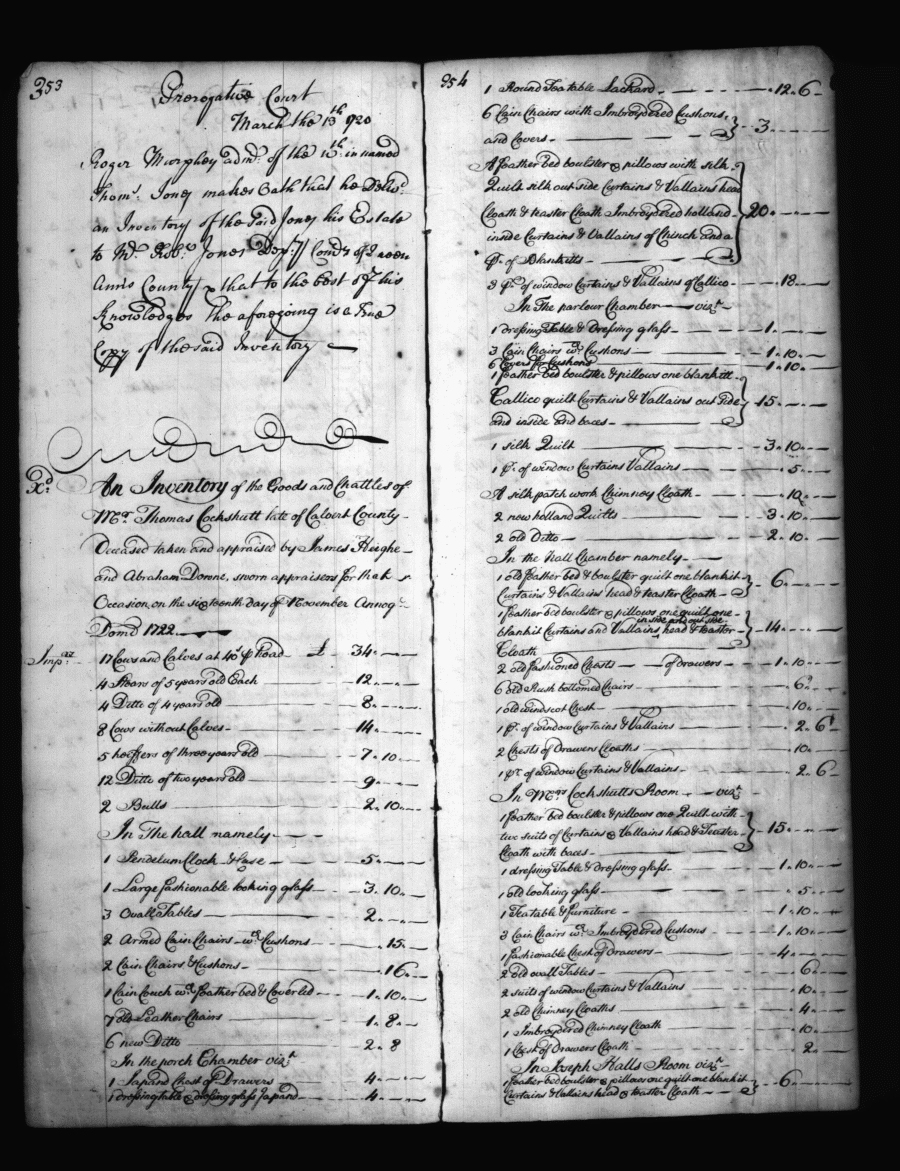 353
Prerogative Court
March the 13th 1720
Roger Murphey adm.r of the within named
Thom.s Jones makes Oath that he Deliv.d
an Inventory of the Said Jones his Estate
to Mr. Rob.t Jones Dep.ty Com.ry of Queen
Anns County & that to the best of his
Knowledge the aforegoing is a True
Copy of the said Inventory
Ex.d An Inventory of the Goods and Chattles of
Mr. Thomas Cockshutt late of Calvert County
Deceased taken and appraised by James Heighe
and Abraham Downe, sworn appraisers for that
Occasion on the sixteenth day of November Annoq.
Domi 1722
Imp.s 17 Cows and Calves at 40s p head £ 34. —
4 Stears of 5 years old Each 12. —
4 Ditto of 4 years old 8. —
8 Cows without Calves 14. —
5 heiffers of three years old 7. 10. —
12 Ditto of two years old 9. —
2 Bulls 2. 10. —
In The hall namely
1 Pendelum Clock & Case 5. —
1 Large fashionable looking glass 3. 10. —
3 Ovall Tables 2. —
2 Armed Cain Chairs w.th Cushons . 15. —
2 Cain Chairs & Cushons . 16. —
1 Cain Couch w.th feather bed & Coverled 1. 10. —
7 old Leather Chairs 1. 8. —
6 new Ditto 2. 8
In the porch Chamber viz.t
1 Japand Chest of Drawers 4. —
1 dressing table & dressing glass Japand 4. —
354
1 Round Tea table Lackard . 12. 6
6 Cain Chairs with Imbroydered Cushons,
and Covers 3. —
A feather bed boulster & pillows with silk
Quilt silk out side Curtains & Vallains head
Cloath & teaster Cloath Imbroydered holland 20. —
inside Curtains & Vallains of Chinch and a
p.r of Blanketts
3 p.r of window Curtains & Vallains of Callico . 18. —
In The parlour Chamber viz.t
1 dressing Table & Dressing glass 1. —
3 Cain Chairs w.th Cushons 1. 10. —
6 Covers for Cushons 1. 10. —
1 feather bed boulster & pillows one blankitt
Callico quilt Curtains & Vallains out side 15. —
and inside and baces
1 silk Quilt 3. 10. —
1 p.r of window Curtains Vallains . 5. —
A silk patch work Chimney Cloath . 10. —
2 new holland Quilts 3. 10. —
2 old Ditto 2. 10. —
In the hall Chamber namely
1 old feather bed & boulster quilt one blankit
Curtains & Vallains head & teaster Cloath 6. —
1 feather bed boulster & pillows one quilt one
in side and out side
blankit Curtains and Vallains, head & teaster 14. —
Cloath
2 old fashioned Chests of drawers 1. 10. —
6 old Rush bottomed Chairs . 6. —
1 old windscot Chest . 10. —
1 p.r of window Curtains & Vallains . 2. 6
2 Chests of Drawers Cloaths . 10. —
1 p.r of window Curtains & Vallains . 2. 6
In Mrs. Cockshutts Room viz.t
1 feather bed boulster & pillows one Quilt with
two suits of Curtains & Vallains head & Teaster 15. —
Cloath with baces
1 dressing Table & dressing glass 1. 10. —
1 old looking glass . 5. —
1 Tea table & furniture 1. 10. —
3 Cain Chairs w.th Imbroydered Cushons 1. 10. —
1 fashionable Chest of Drawers 4. —
2 old ovall Tables . 6. —
2 suits of window Curtains & Vallains . 10. —
2 old Chimney Cloaths . 4. —
1 Imbroydered Chimney Cloath . 10. —
1 Chest of Drawers Cloath . 2. —
In Joseph Halls Room viz.t
1 feather bed boulster & pillows one quilt one blankit
Curtains & Vallains head & teaster Cloath 6. —